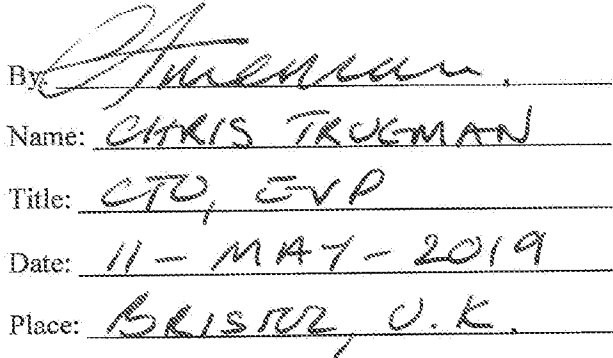 By:
Name: CHRIS TRUEMAN
Title: CTO, EVP
Date: 11 - MAY - 2019
Place: BRISTOL, U.K.